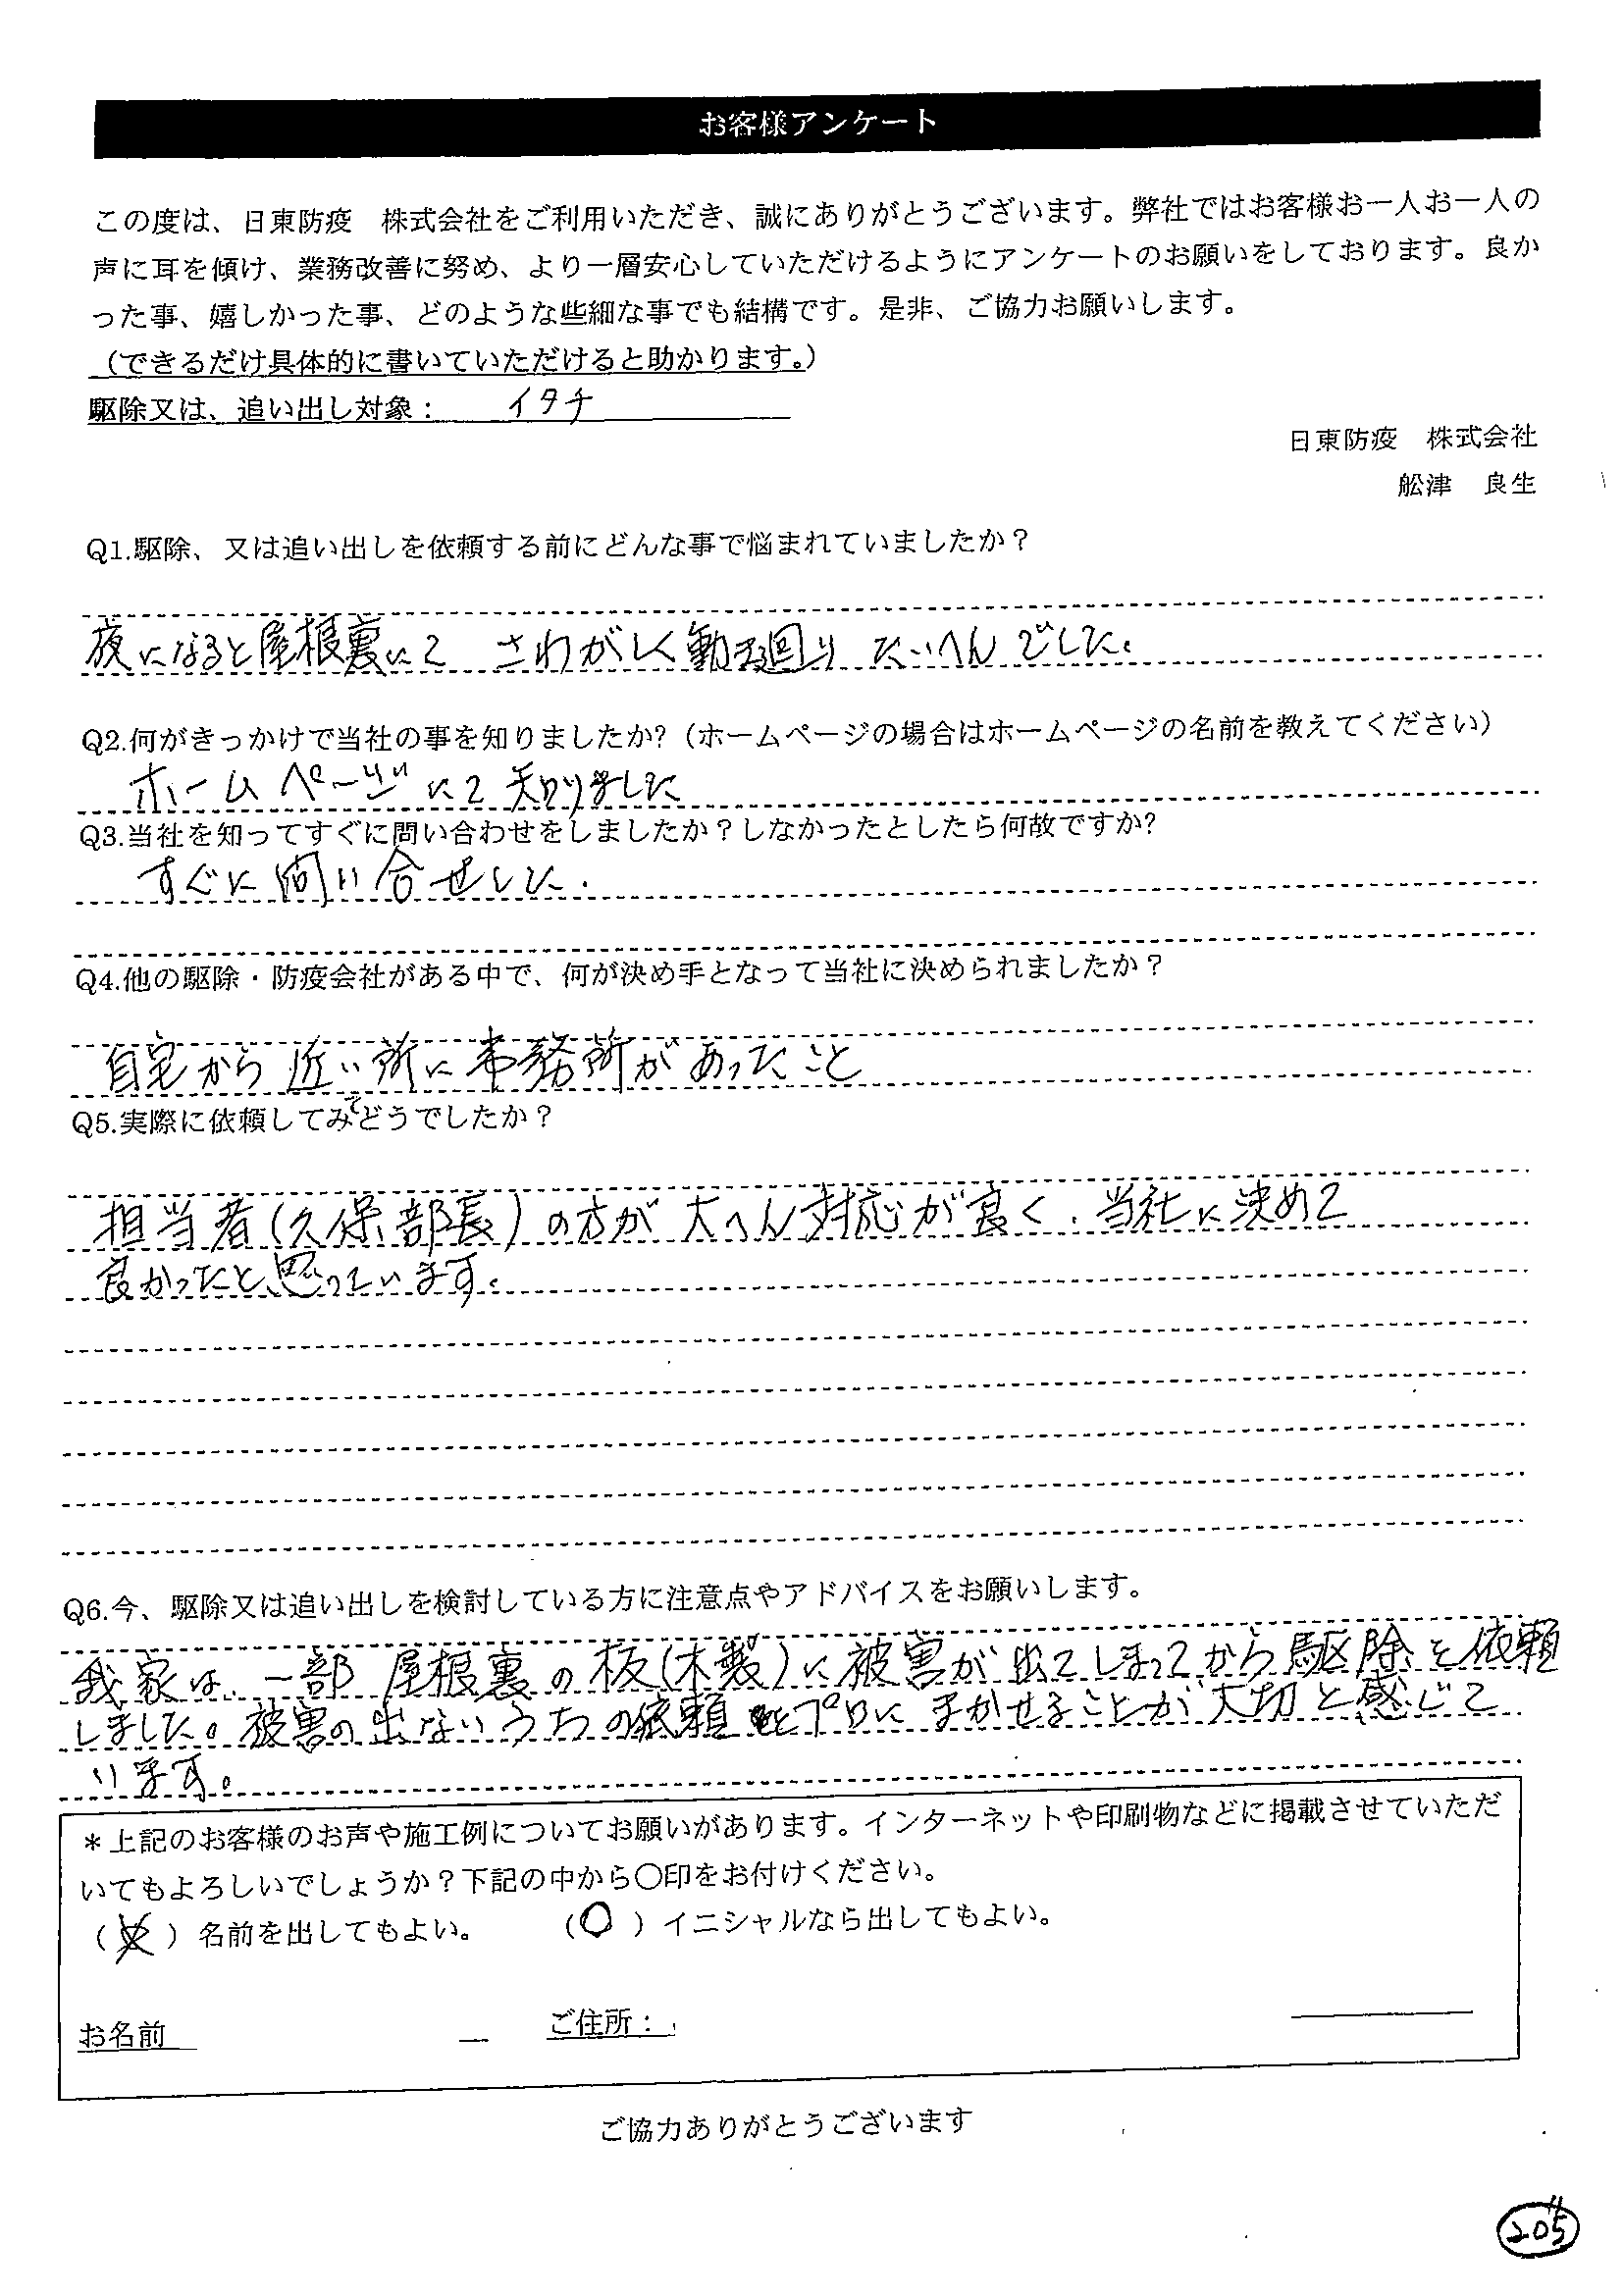 お客様アンケート
この度は、日東防疫　株式会社をご利用いただき、誠にありがとうございます。弊社ではお客様お一人お一人の
声に耳を傾け、業務改善に努め、より一層安心していただけるようにアンケートのお願いをしております。良か
った事、嬉しかった事、どのような些細な事でも結構です。是非、ご協力お願いします。
（できるだけ具体的に書いていただけると助かります。）
駆除又は、追い出し対象： イタチ
日東防疫　株式会社
舩津　良生
Q1.駆除、又は追い出しを依頼する前にどんな事で悩まれていましたか？
夜になると屋根裏にて さわがしく動き回り たいへんでした。
Q2.何がきっかけで当社の事を知りましたか?（ホームページの場合はホームページの名前を教えてください）
ホームページにて知りました
Q3.当社を知ってすぐに問い合わせをしましたか？しなかったとしたら何故ですか?
すぐに問い合せした.
Q4.他の駆除・防疫会社がある中で、何が決め手となって当社に決められましたか？
自宅から近い所に事務所があったこと
Q5.実際に依頼してみてどうでしたか？
担当者(久保部長)の方が大へん対応が良く、当社に決めて
良かったと思っています。
Q6.今、駆除又は追い出しを検討している方に注意点やアドバイスをお願いします。
我家は、一部 屋根裏の板(木製)に被害が出てしまってから駆除を依頼
しました。被害の出ないうちの依頼をプロにまかせることが大切と感じて
います。
＊上記のお客様のお声や施工例についてお願いがあります。インターネットや印刷物などに掲載させていただ
いてもよろしいでしょうか？下記の中から〇印をお付けください。
（ ）名前を出してもよい。　（〇）イニシャルなら出してもよい。
お名前　ご住所：
ご協力ありがとうございます
205